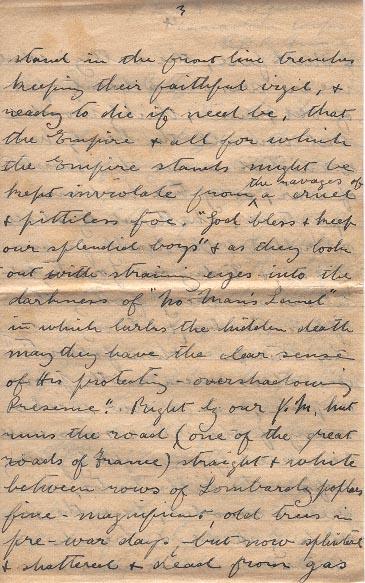 3
stand in the front line trenches
keeping their faithful vigil, &
ready to die if need be, that
the Empire & all for which
the Empire stands might be
the ravages of
kept inviolate from a cruel
& pitiless foe. "God bless & keep
our splendid boys" & as they look
out with straining eyes into the
darkness of "No-Man's Land"
in which lurks the hidden death
may they have the clear sense
of His protecting - overshadowing
Presence". Right by our Y.M. hut
runs the road (one of the great
roads of France) straight & white
between rows of Lombardy poplars
fine - magnificent old trees in
pre-war days - but now splintered
& shattered & dead from gas